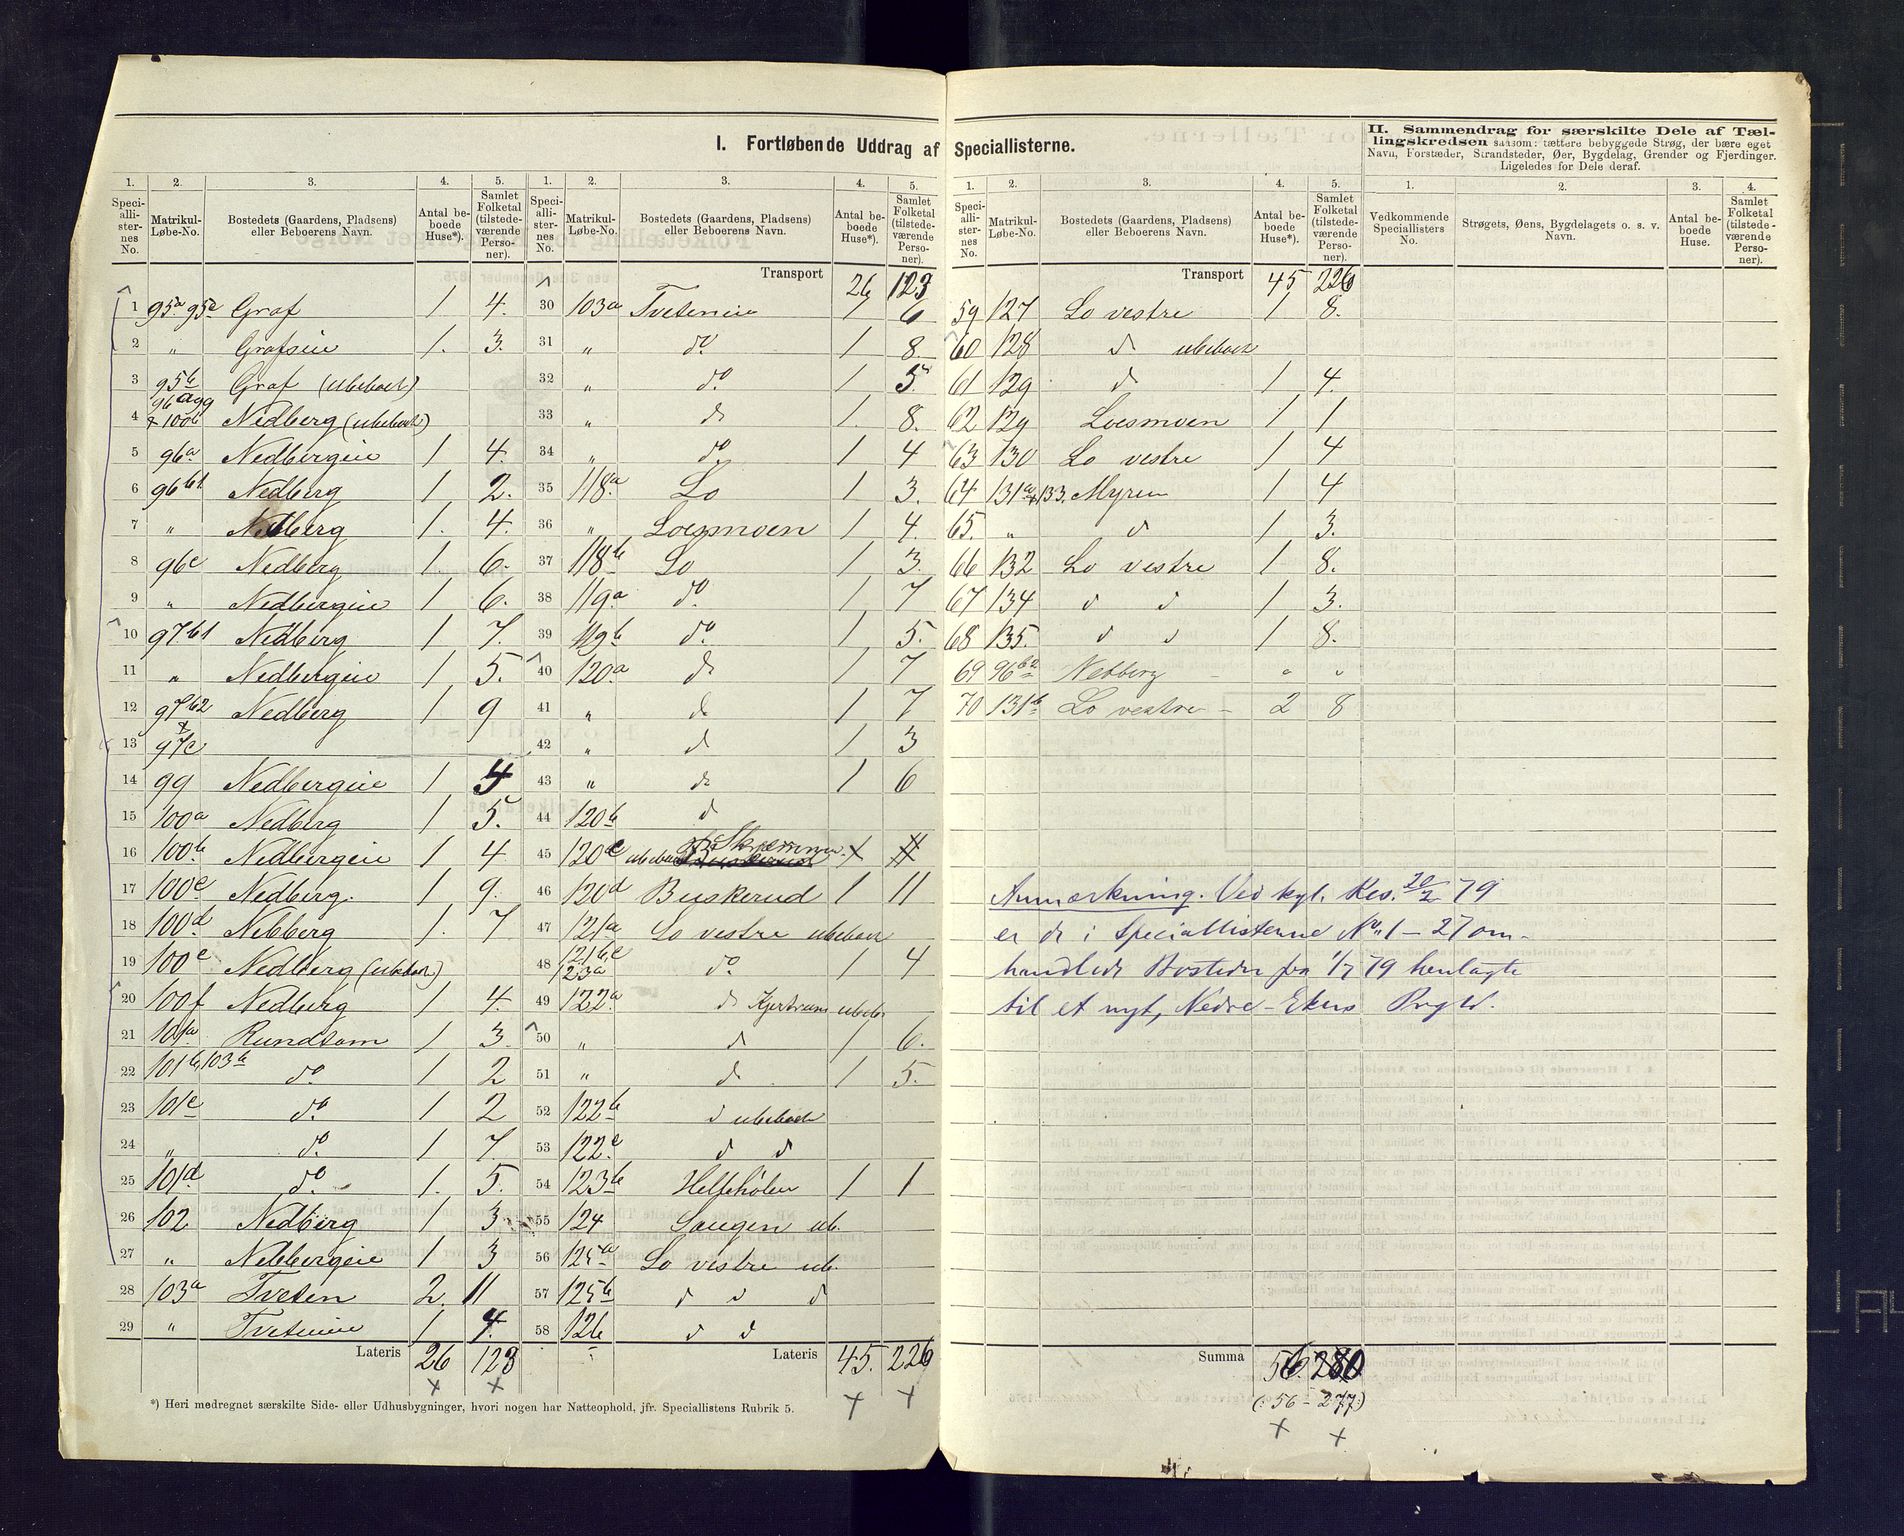 I. Fortløbende Uddrag af Speciallisterne.
II. Sammendrag for særskilte Dele af Tællingskredsen saasom: tættere bebyggede Strøg, der bære eget
Navn, Forstæder, Strandsteder, Øer, Bygdelag, Grender og Fjerdinger.
Ligeledes for Dele deraf.
1. 2. 3. 4. 5.
Speciallisternes No. Matrikul-Løbe-No. Bostedets (Gaardens, Pladsen) eller Beboerens Navn. Antal beboede Huse*). Samlet Folketal (tilstedeværende Personer).
1 95a 95c Graf 1 4.
2 „ Grafseie 1. 3.
3 95b Graf (ubeboet)
4 96agg & 100b Nedberg (ubeboet)
5 96a Nedbergeie 1 4.
6 96b1 Nedberg 1 2.
7 „ Nedberg 1. 4.
8 96c Nedberg 1. 6.
9 „ Nedbergeie 1 6.
10 97b1 Nedberg 1 7.
11 „ Nedbergeie 1 5.
12 97b2 Nedberg 1 9
13 & 97c
14 99 Nedbergeie 1 4
15 100a Nedberg 1 5.
16 100b Nedbergeie 1 4
17 100c Nedberg. 1 9.
18 100d Nebberg 1. 7
19 100e Nedberg (ubeboet)
20 100f Nedberg 1 4.
21 101a Rundtom 1 3.
22 101b, 103b do. 1 2
23 101c do. 1 2
24 „ do. 1 7.
25 101d do. 1. 5.
26 102 Nedberg 1 3
27 „ Nebbergeie 1 3
28 103a Tveten 2 11
29 „ Tveteneie 1 4.
Lateris 26 123
*) Heri medregnet særskilte Side- eller Udhusbygninger, hvori nogen har Natteophold, jfr. Speciallistens Rubrik 5.
1. 2. 3. 4. 5.
Speciallisternes No. Matrikul-Løbe-No. Bostedets (Gaardens, Pladsens) eller Beboerens Navn. Antal beboede Huse*). Samlet Folketal (tilstedeværende Personer).
Transport 26 123
30 103a Tveteneie 1 6
31 „ do. 1 8.
32 „ do. 1 5
33 „ d 1. 8.
34 „ do 1 4
35 118a Lo 1 3.
36 „ Loesmoen 1 4.
37 118b Lo 1 3.
38 119a do. 1 7
39 119b do. 1 5.
40 120a d 1 7
41 „ d 1 7
42 „ d 1 3
43 „ d 1 6
44 120b d
45 120c ubeboet
46 120d Buskerud 1 11
47 121a Lo vestre ubeboet
48 121b,c 123a do. 1 4
49 122a d ubeb.
50 „ d 1 6.
51 „ d 1 5.
52 122b d ubeboet
53 122c d d
54 123b 1 1
55 124 Laugen ub.
56 125a Lo vestre ub.
57 125b d d d
58 126 d d
Lateris 45. 226
1. 2. 3. 4. 5.
Speciallisternes No. Matrikul-Løbe-No. Bostedets (Gaardens, Pladsens) eller Beboerens Navn. Antal beboede Huse*). Samlet Folketal (tilstedeværende Personer).
Transport 45 226
59 127 Lo vestre 1 8.
60 128 d ubeboet
61 129 d 1 4.
62 129 Loesmoen 1 1
63 130 Lo vestre 1 4
64 131a & 133. Myren 1 4
65. „ d 1 3.
66 132 Lo vestre 1 8.
67 134 d d 1 3.
68 135. d d 1 8.
69 96b2 Nebberg - „ „
70 131b Lo vestre - 2 8
Anmærkning. Ved kgl. Res. 20/2 79
er de i Speciallisterne No. 1 – 27 om-
handlede Bosteder fra 1/7 79 henlagte
til et nyt, Nedre-Ekers Prgld.
Summa 56. 280
(: 56 – 277:)
1. 2. 3. 4.
Vedkommende Speciallisters No. Strøgets, Øens, Bygdelagets o. s. v. Navn. Antal beboede Huse. Samlet Folketal (tilstedeværende Personer).